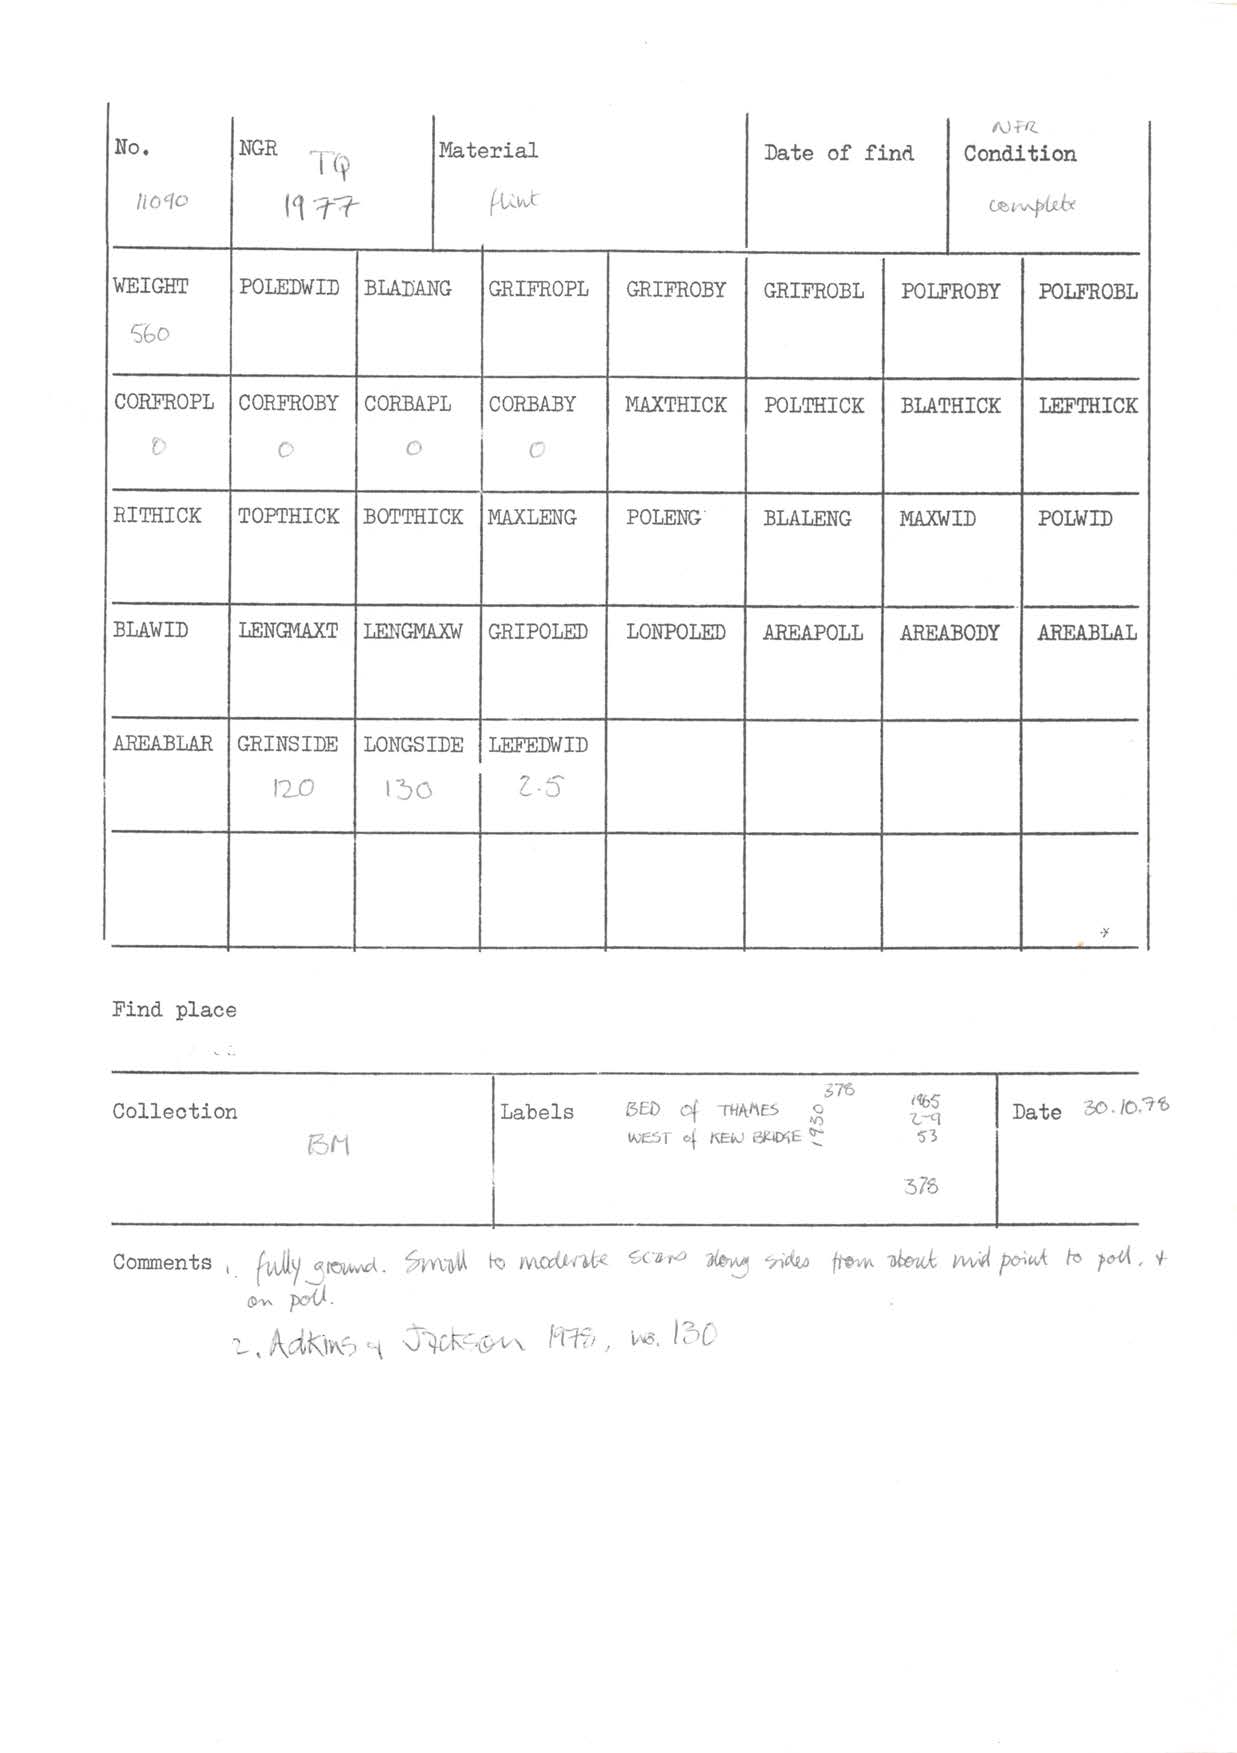 NFR
No. NGR TQ Material Date of find Condition
11090 1977 flint complete
WEIGHT POLEDWID BLADANG GRIFROPL GRIFROBY GRIFROBL POLFROBY POLFROBL
560
CORFROPL CORFROBY CORBAPL CORBABY MAXTHICK POLTHICK BLATHICK LEFTHICK
0 0 0 0
RITHICK TOPTHICK BOTTHICK MAXLENG POLENG BLALENG MAXWID POLWID
BLAWID LENGMAXT LENGMAXW GRIPOLED LONPOLED AREAPOLL AREABODY AREABLAL
AREABLAR GRINSIDE LONGSIDE LEFEDWID
120 130 2.5
Find place
Collection BM
Labels BED of THAMES
WEST of KEW BRIDGE
1930
378
1965
2-9
53
378
Date 30.10.78
Comments 1. fully ground. Small to moderate scars along sides from about mid point to poll, +
on poll.
2. Adkins & Jackson 1978, no. 130